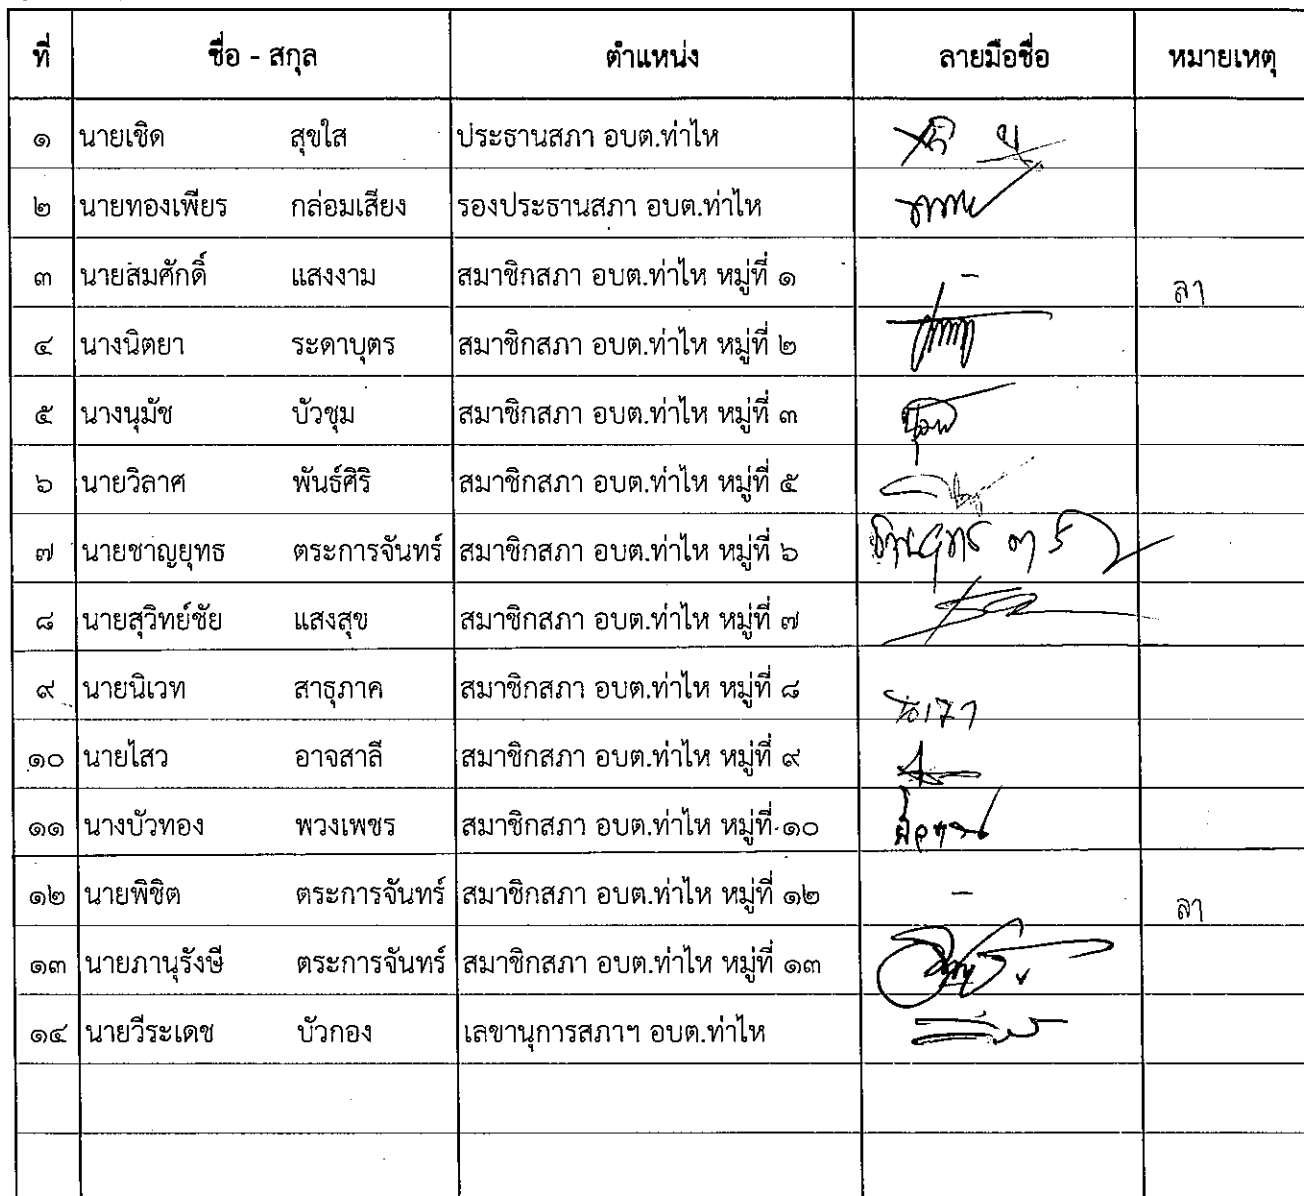 ที่ ชื่อ - สกุล ตำแหน่ง ลายมือชื่อ หมายเหตุ
๑ นายเชิด สุขใส ประธานสภา อบต.ท่าไห
๒ นายทองเพียร กล่อมเสียง รองประธานสภา อบต.ท่าไห
๓ นายสมศักดิ์ แสงงาม สมาชิกสภา อบต.ท่าไห หมู่ที่ ๑ - ลา
๔ นางนิตยา ระดาบุตร สมาชิกสภา อบต.ท่าไห หมู่ที่ ๒
๕ นางนุมัช บัวชุม สมาชิกสภา อบต.ท่าไห หมู่ที่ ๓
๖ นายวิลาศ พันธ์ศิริ สมาชิกสภา อบต.ท่าไห หมู่ที่ ๕
๗ นายชาญยุทธ ตระการจันทร์ สมาชิกสภา อบต.ท่าไห หมู่ที่ ๖
๘ นายสุวิทย์ชัย แสงสุข สมาชิกสภา อบต.ท่าไห หมู่ที่ ๗
๙ นายนิเวท สาธุภาค สมาชิกสภา อบต.ท่าไห หมู่ที่ ๘
๑๐ นายไสว อาจสาลี สมาชิกสภา อบต.ท่าไห หมู่ที่ ๙
๑๑ นางบัวทอง พวงเพชร สมาชิกสภา อบต.ท่าไห หมู่ที่ ๑๐
๑๒ นายพิชิต ตระการจันทร์ สมาชิกสภา อบต.ท่าไห หมู่ที่ ๑๒ - ลา
๑๓ นายภานุรังษี ตระการจันทร์ สมาชิกสภา อบต.ท่าไห หมู่ที่ ๑๓
๑๔ นายวีระเดช บัวกอง เลขานุการสภาฯ อบต.ท่าไห